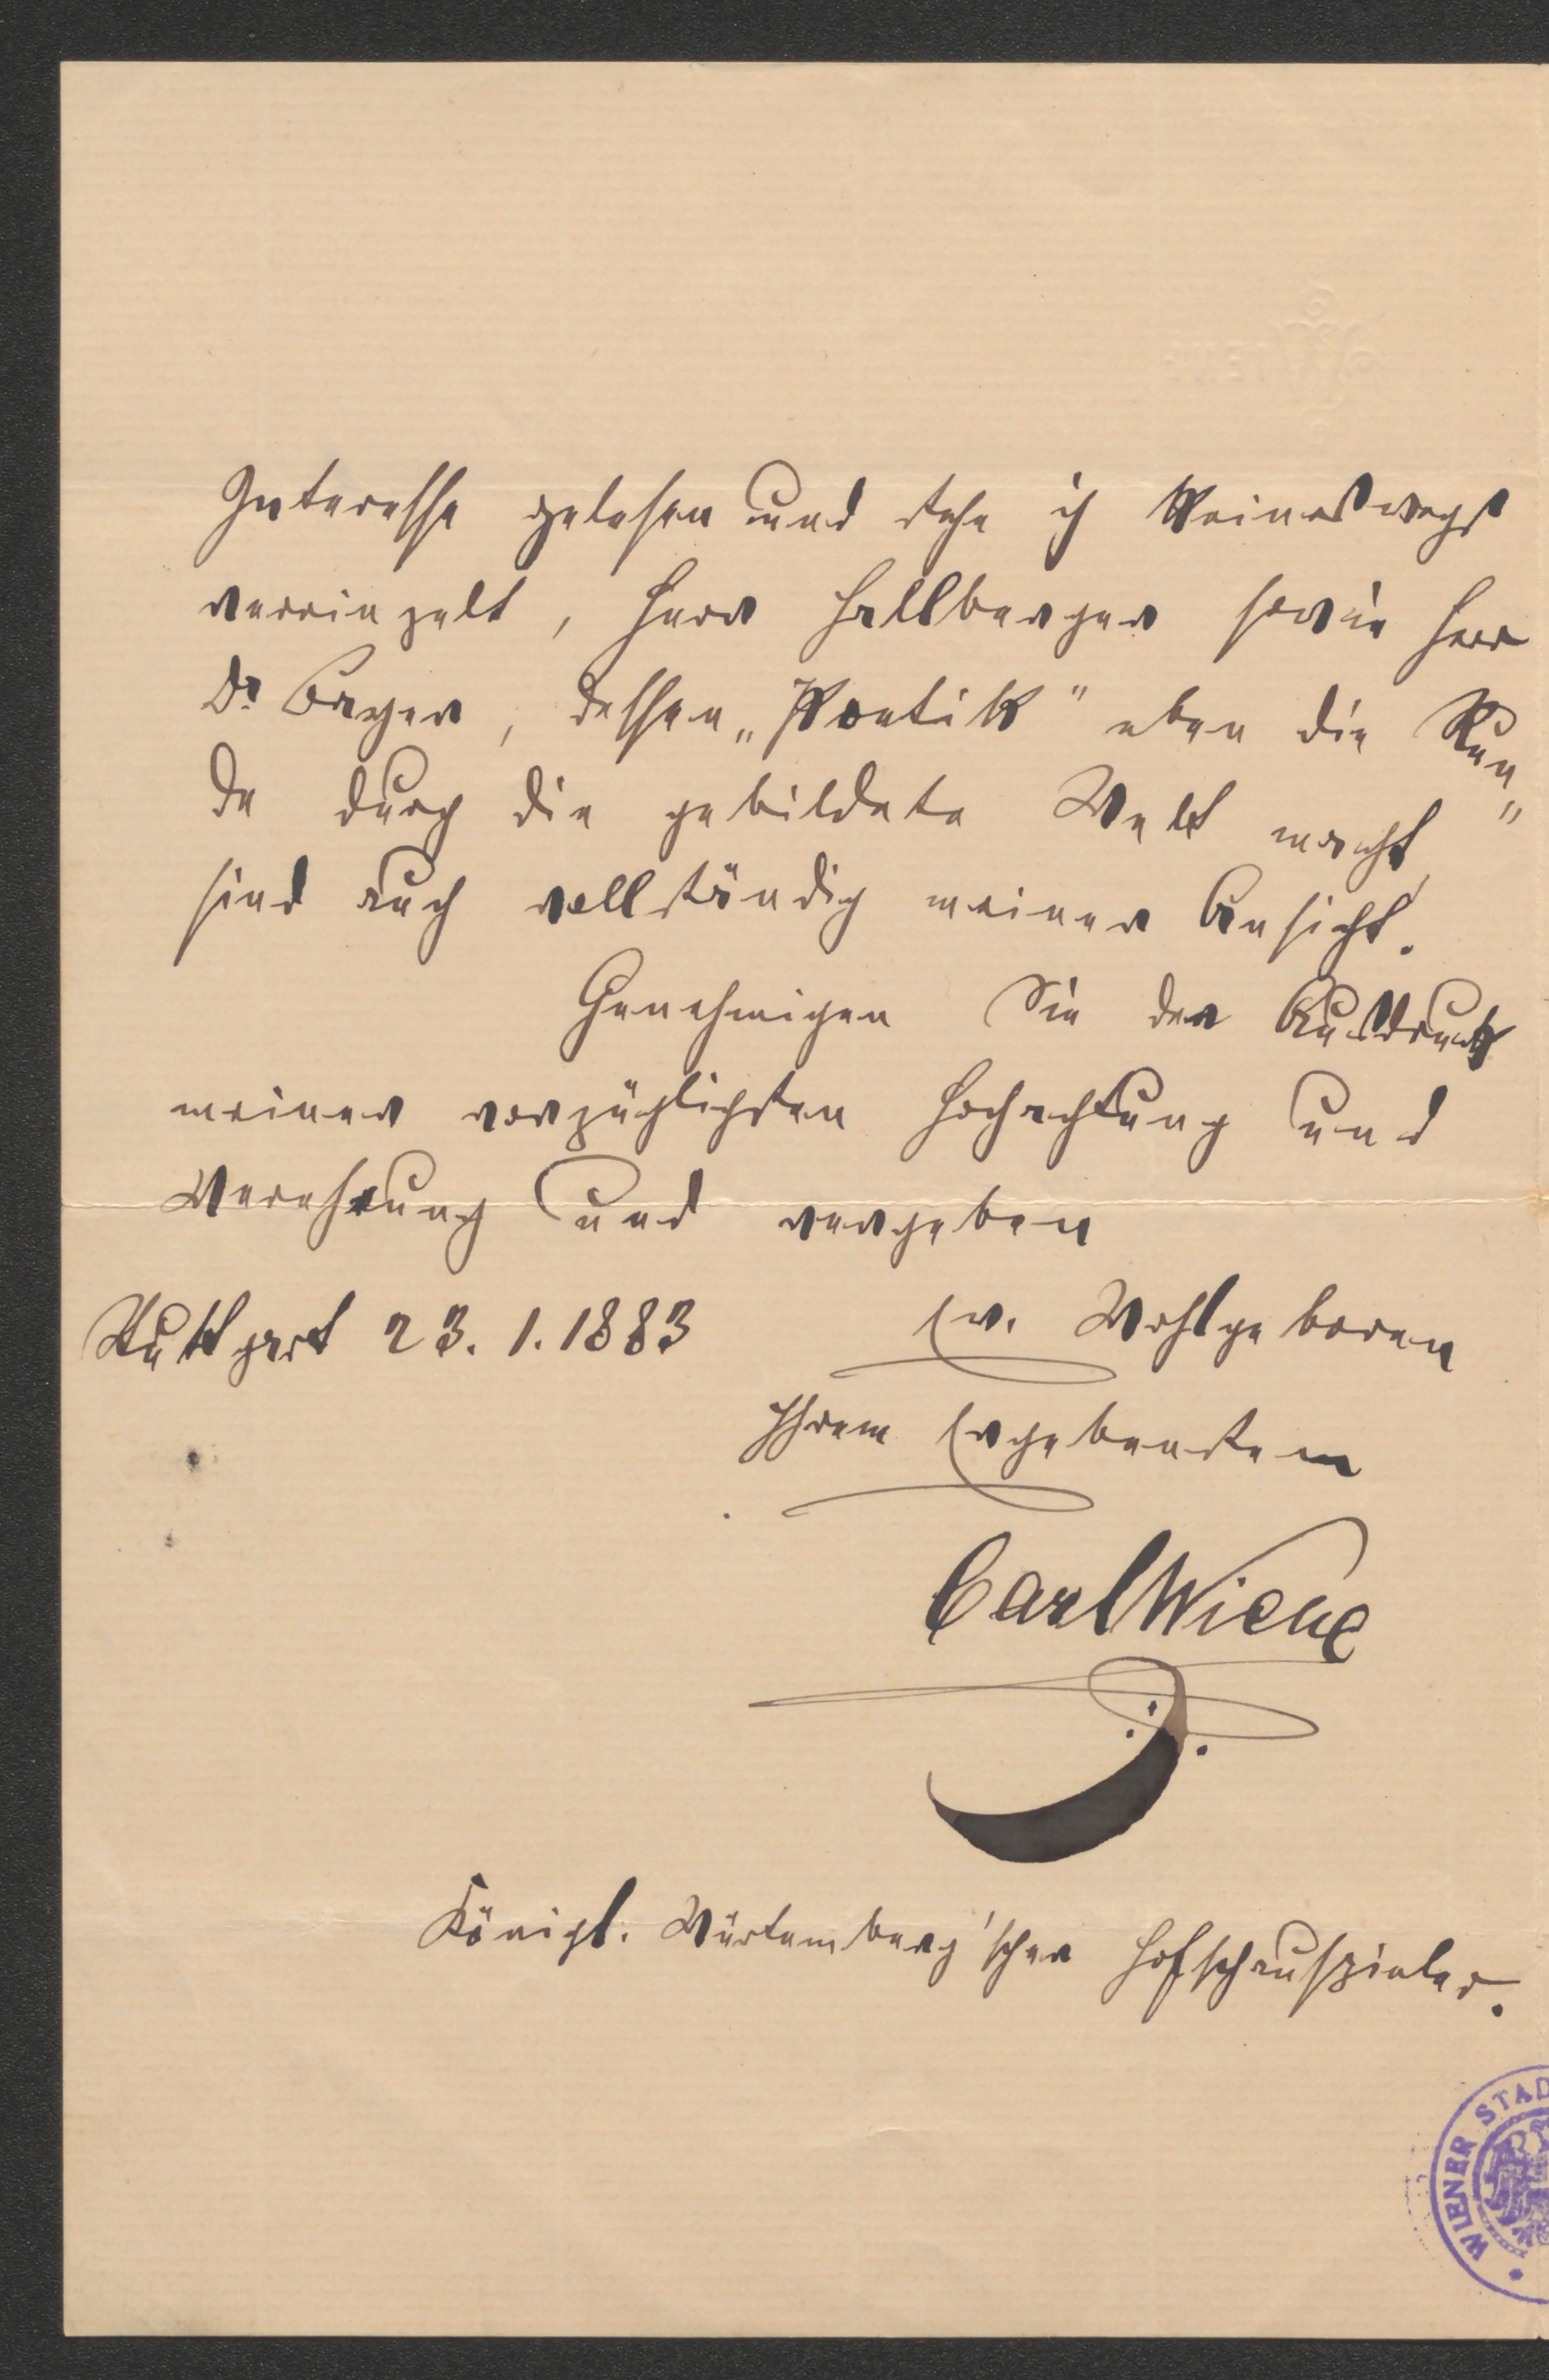 Interesse gelesen und stehe ich keineswegs
vereinzelt, Herr Hallberger sowie Herr
Dr Beyer, dessen „Poetik" eben die Run„
de durch die gebildete Welt macht,
sind auch vollständig meiner Ansicht.
Genehmigen Sie den Ausdruck
meiner vorzüglichsten Hochachtung und
Verehrung und vergeben
Stuttgart 23. 1. 1883 Ew. Wohlgeboren
Ihrem Ergebenstem
Carl Wiene
Königl. Würtemberg'scher Hofschauspieler.
WIENER STAD